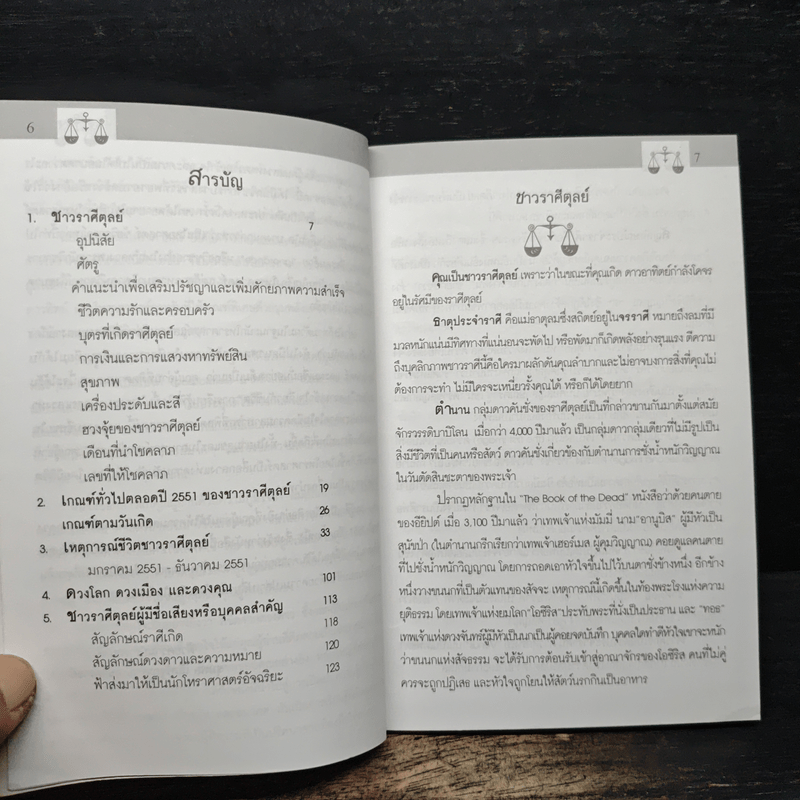 6
สารบัญ
1. ชาวราศีตุลย์ 7
อุปนิสัย
ศัตรู
คำแนะนำเพื่อเสริมปรัชญาและเพิ่มศักยภาพความสำเร็จ
ชีวิตความรักและครอบครัว
บุตรที่เกิดราศีตุลย์
การเงินและการแสวงหาทรัพย์สิน
สุขภาพ
เครื่องประดับและสี
ฮวงจุ้ยของชาวราศีตุลย์
เดือนที่นำโชคลาภ
เลขที่ให้โชคลาภ
2. เกณฑ์ทั่วไปตลอดปี 2551 ของชาวราศีตุลย์ 19
เกณฑ์ตามวันเกิด 26
3. เหตุการณ์ชีวิตชาวราศีตุลย์ 33
มกราคม 2551 - ธันวาคม 2551
4. ดวงโลก ดวงเมือง และดวงคุณ 101
5. ชาวราศีตุลย์ผู้มีชื่อเสียงหรือบุคคลสำคัญ 113
สัญลักษณ์ราศีเกิด 118
สัญลักษณ์ดวงดาวและความหมาย 120
ฟ้าส่งมาให้เป็นนักโหราศาสตร์อัจฉริยะ 123
7
ชาวราศีตุลย์
คุณเป็นชาวราศีตุลย์ เพราะว่าในขณะที่คุณเกิด ดาวอาทิตย์กำลังโคจร
อยู่ในรัศมีของราศีตุลย์
ธาตุประจำราศี คือแม่ธาตุลมซึ่งสถิตย์อยู่ในจรราศี หมายถึงลมที่มี
มวลหนักแน่นมีทิศทางที่แน่นอนจะพัดไป หรือพัดมาก็เกิดพลังอย่างรุนแรง ตีความ
ถึงบุคลิกภาพชาวราศีนี้คือใครมาผลักดันคุณลำบากและไม่อาจบงการสิ่งที่คุณไม่
ต้องการจะทำ ไม่มีใครจะเหนี่ยวรั้งคุณได้ หรือก็ได้โดยยาก
ตำนาน กลุ่มดาวคันชั่งของราศีตุลย์เป็นที่กล่าวขานกันมาตั้งแต่สมัย
จักรวรรดิบาบิโลน เมื่อกว่า 4,000 ปีมาแล้ว เป็นกลุ่มดาวกลุ่มเดียวที่ไม่มีรูปเป็น
สิ่งมีชีวิตที่เป็นคนหรือสัตว์ ดาวคันชั่งเกี่ยวข้องกับตำนานการชั่งน้ำหนักวิญญาณ
ในวันตัดสินชะตาของพระเจ้า
ปรากฏหลักฐานใน "The Book of the Dead" หนังสือว่าด้วยคนตาย
ของอียิปต์ เมื่อ 3,100 ปีมาแล้ว ว่าเทพเจ้าแห่งมัมมี่ นาม"อานูบิส" ผู้มีหัวเป็น
สุนัขป่า (ในตำนานกรีกเรียกว่าเทพเจ้าเฮอร์เมส ผู้คุมวิญญาณ) คอยดูแลคนตาย
ที่ไปชั่งน้ำหนักวิญญาณ โดยการถอดเอาหัวใจขึ้นไปไว้บนตาชั่งข้างหนึ่ง อีกข้าง
หนึ่งวางขนนกที่เป็นตัวแทนของสัจจะ เหตุการณ์นี้เกิดขึ้นในท้องพระโรงแห่งความ
ยุติธรรม โดยเทพเจ้าแห่งยมโลก"โอซิริส"ประทับพระที่นั่งเป็นประธาน และ "ทอธ"
เทพเจ้าแห่งดวงจันทร์ผู้มีหัวเป็นนกเป็นผู้คอยจดบันทึก บุคคลใดทำดีหัวใจเขาจะหนัก
ว่าขนนกแห่งสัจธรรม จะได้รับการต้อนรับเข้าสู่อาณาจักรของโอซิริส คนที่ไม่คู่
ควรจะถูกปฏิเสธ และหัวใจถูกโยนให้สัตว์นรกกินเป็นอาหาร